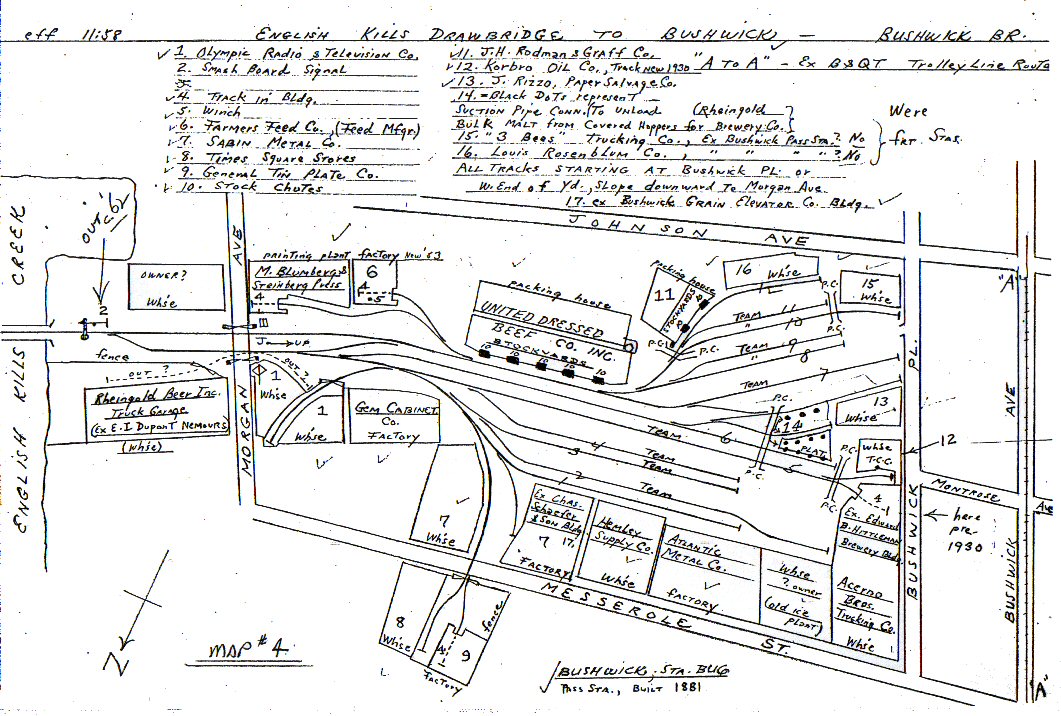 eff 11:58 ENGLISH KILLS DRAWBRIDGE TO BUSHWICK, — BUSHWICK BR.
✓ 1. Olympic Radio & Television Co.
2. Smash Board Signal
3.
✓ 4. Track in Bldg.
✓ 5. Winch
✓ 6. Farmers Feed Co., (Feed Mfgr.)
✓ 7. Sabin Metal Co.
✓ 8. Times Square Stores
✓ 9. General Tin Plate Co.
✓ 10. Stock Chutes
✓ 11. J.H. Rodman & Graff Co.
✓ 12. Korbro Oil Co., Track new 1930 "A To A" - Ex B&QT Trolley Line Route
✓ 13. J. Rizzo, Paper Salvage Co.
14. = Black Dots represent
Suction Pipe Conn. (To Unload (Rheingold
Bulk Malt from Covered Hoppers for Brewery Co.)
15. "3 Bees Trucking Co., Ex Bushwick Pass Sta.? No
16. Louis Rosenblum Co., " " " "? No
Were
frt. Stas.
ALL TRACKS STARTING AT Bushwick PL. or
W. End of Yd., Slope downward To Morgan Ave.
17. ex Bushwick Grain Elevator Co. Bldg. ✓
OUT C '62
2
ENGLISH KILLS CREEK
OWNER?
Whse
MORGAN AVE
printing plant
M. Blumberg &
Steinberg Press
4
factory New '63
6
4
5
JOHNSON AVE
packing house
UNITED DRESSED
BEEF CO. INC.
STOCKYARDS
10 10 10 10 10
packing house
11
STOCKYARDS
P.C.
P.C.
16 Whse
15
Whse
P.C.
P.C.
"A"
TEAM 11
" 10
TEAM 9
" 8
TEAM 7
UP
fence
OUT ?
Rheingold Beer Inc.
Truck Garage
(Ex E.I. Dupont Nemours)
(Whse)
1
Whse
1
Whse
Gem Cabinet
Co.
Factory
P.C.
P.C.
14
PLAT
13
Whse
Whse
T.C.C.
12
P.C.
P.C.
6
5
4 TEAM
3 TEAM
2 TEAM
4
7
Whse
Ex Chas.
Schaefer
& Son Bldg
7 17.
FACTORY
Hemley
Supply Co.
Whse
Atlantic
Metal Co.
FACTORY
Whse
? owner
(old ice
plant)
Ex. Edward
B. Hittleman
Brewery Bldg.
Acerno
Bros.
Trucking Co.
Whse
BUSHWICK PL.
MONTROSE Ave
here
pre-
1930
BUSHWICK AVE
MESSEROLE ST.
8
Whse
4
9
fence
Factory
Z
MAP #4
BUSHWICK, STA. BLDG
✓ PASS STA., BUILT 1881
"A"